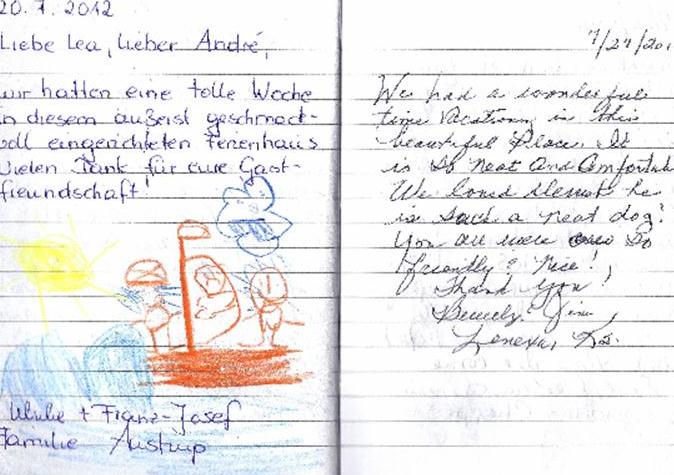 20.7.2012
Liebe Lea, Lieber André,
wir hatten eine tolle Woche
in diesem äußerst geschmack-
voll eingerichteten Ferienhaus
Vielen Dank für eure Gast-
freundschaft!
Ulrike + Franz-Josef
Familie Austrup
7/27/201
We had a wonderful
time Vacationing in this
beautiful Place. It
is So neat and Comfortab
We loved he
is such a neat dog!
You all were so
friendly & nice!
Thank You!
Beverly Jim,
Lenexa, Ks.